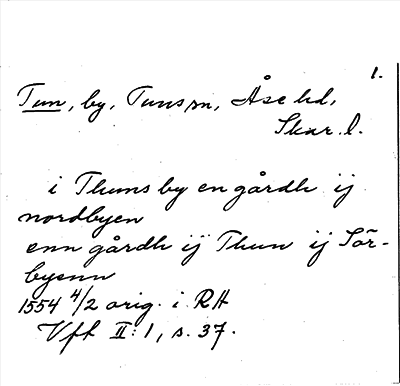 1.
Tun, by, Tuns sn, Åse hd,
Skar. l.
i Thuns by en gårdh ij
nordbyen
enn gårdh ij Thun ij Sör-
byenn
1554 4/2 orig. i RA
Vfl II:1, s. 37.